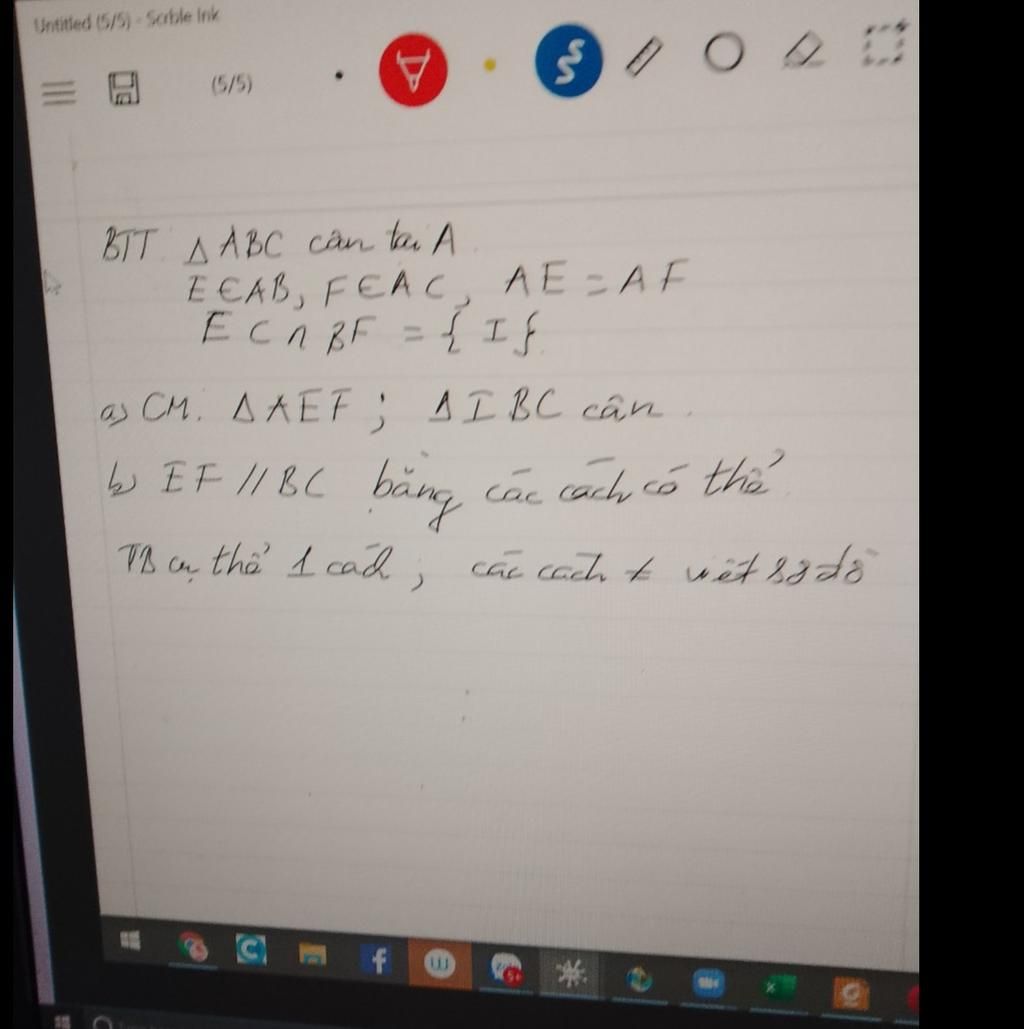 Untitled (5/5) - Scrble Ink
(5/5)
BTT ΔABC cân tại A
E∈AB, F∈AC, AE = AF
EC ∩ BF = { I }
a) CM. ΔAEF ; ΔIBC cân.
b) EF // BC bằng các cách có thể
TB cụ thể 1 cách ; các cách ≠ viết sơ đồ